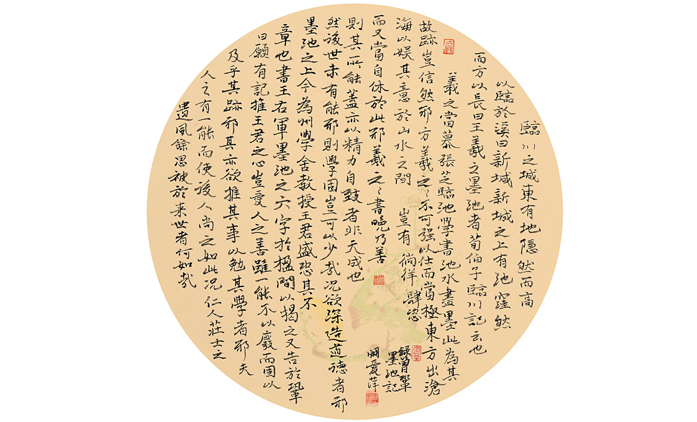 臨川之城東有地隱然而高
以臨於溪曰新城新城之上有池窪然
而方以長曰王羲之墨池者荀伯子臨川記云也
羲之嘗慕張芝臨池學書池水盡墨此為其
故跡豈信然邪方羲之〻不可強以仕而嘗極東方出滄
海以娛其意於山水之間豈有徜徉肆恣
而又嘗自休於此邪羲之〻書晚乃善
則其所能蓋亦以精力自致者非天成也
然後世未有能邪則學固豈可以少哉況欲深造道德者邪
墨池之上今為州學舍教授王君盛恐其不
章也書王右軍墨池之六字於楹間以揭之又告於鞏
曰願有記推王君之心豈愛人之善雖能不以廢而因以
及乎其跡邪其亦欲推其事以勉其學者邪夫
人之有一能而使後人尚之如此況仁人莊士之
遺風餘思被於來世者何如哉
錄曾鞏
墨池記
愛萍